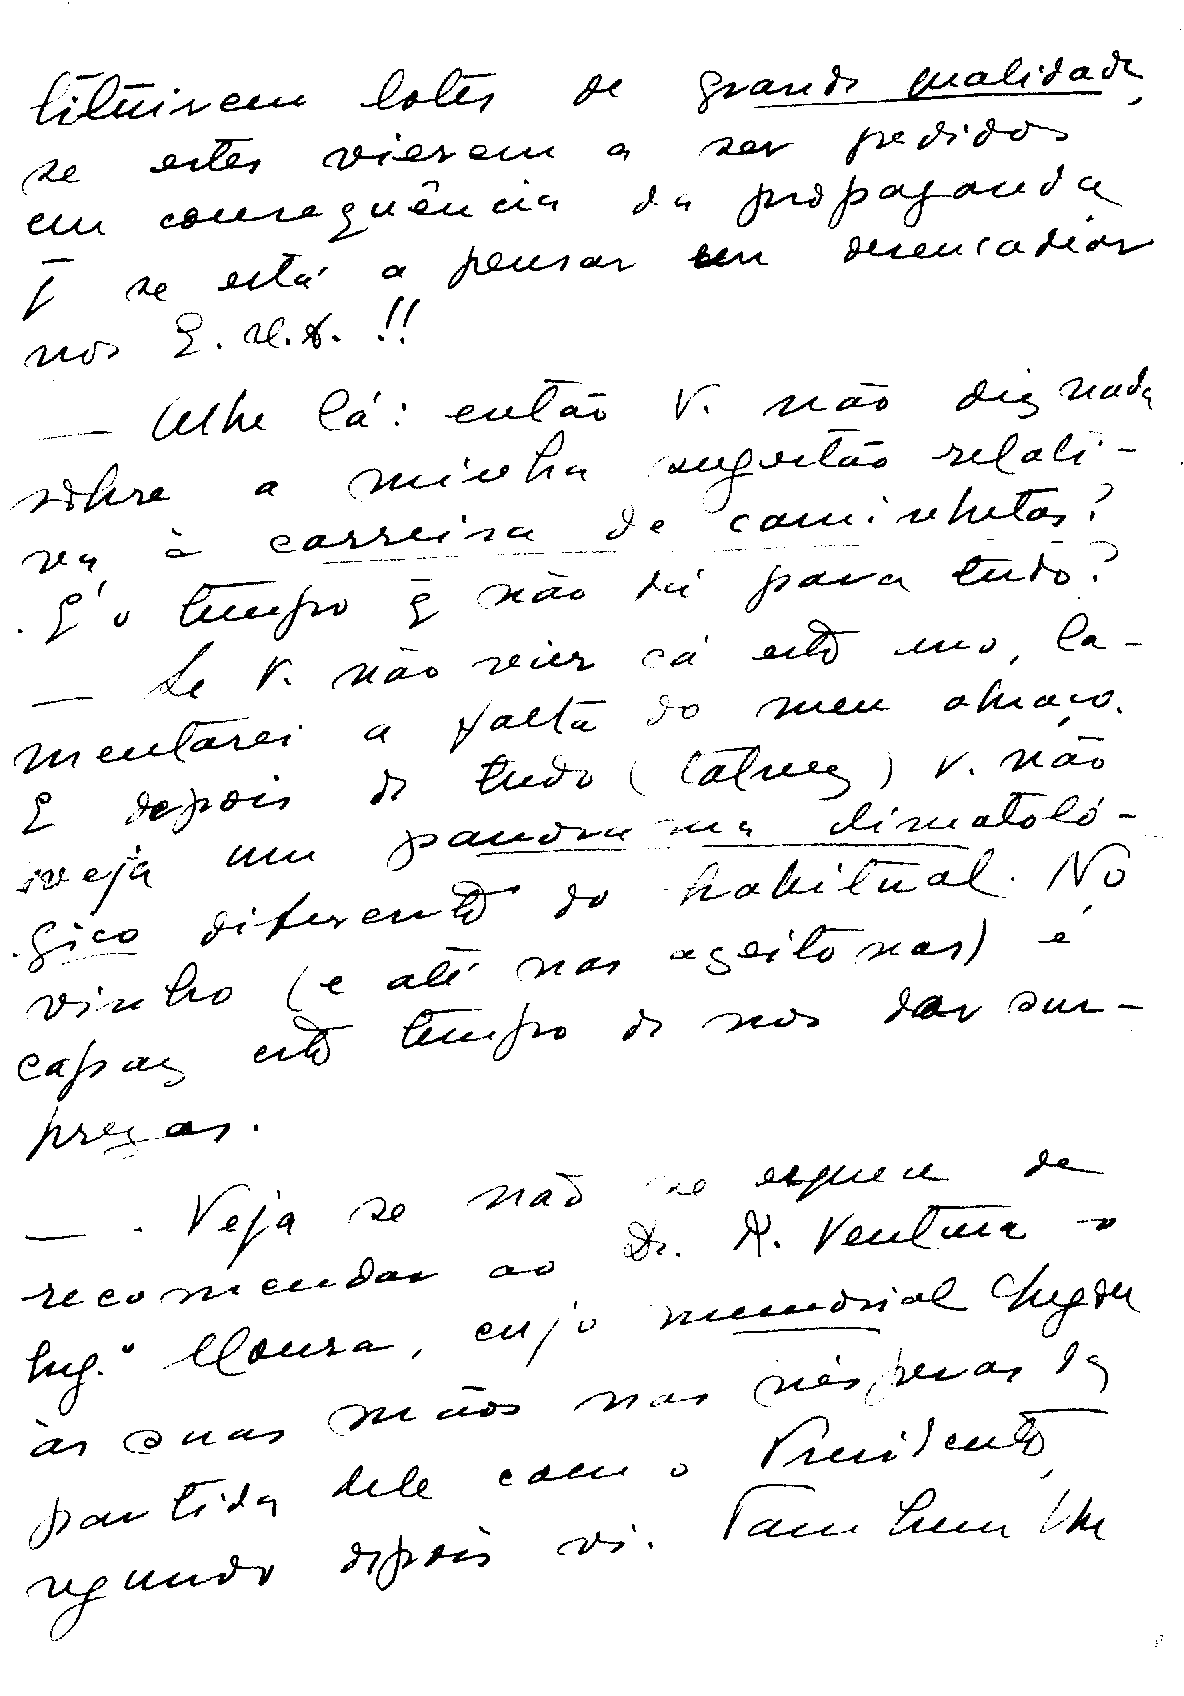 tituirem lotes de grande qualidade,
se estes vierem a ser pedidos
em consequência da propaganda
q̄ se está a pensar em desencadiar
nos E.U.A. !!
— Olhe lá: então V. não diz nada
sôbre a minha sugestão relati-
va à carreira de caminhetas?
E' o tempo q̄ não dá para tudo?
— Se V. não vier cá este ano, la-
mentarei a falta do meu abraço.
E depois de tudo (talvez) V. não
veja um panorama climatoló-
gico diferente do habitual. No
vinho (e até nas azeitonas) é
capaz este tempo de nos dar sur-
prezas.
— Veja se não se esquece de
recomendar ao Dr. R. Ventura o
Eng.º Moura, cujo memorial chegou
às suas mãos nas vésperas da
partida dele com o Presidente,
segundo depois vi. Tambem lhe